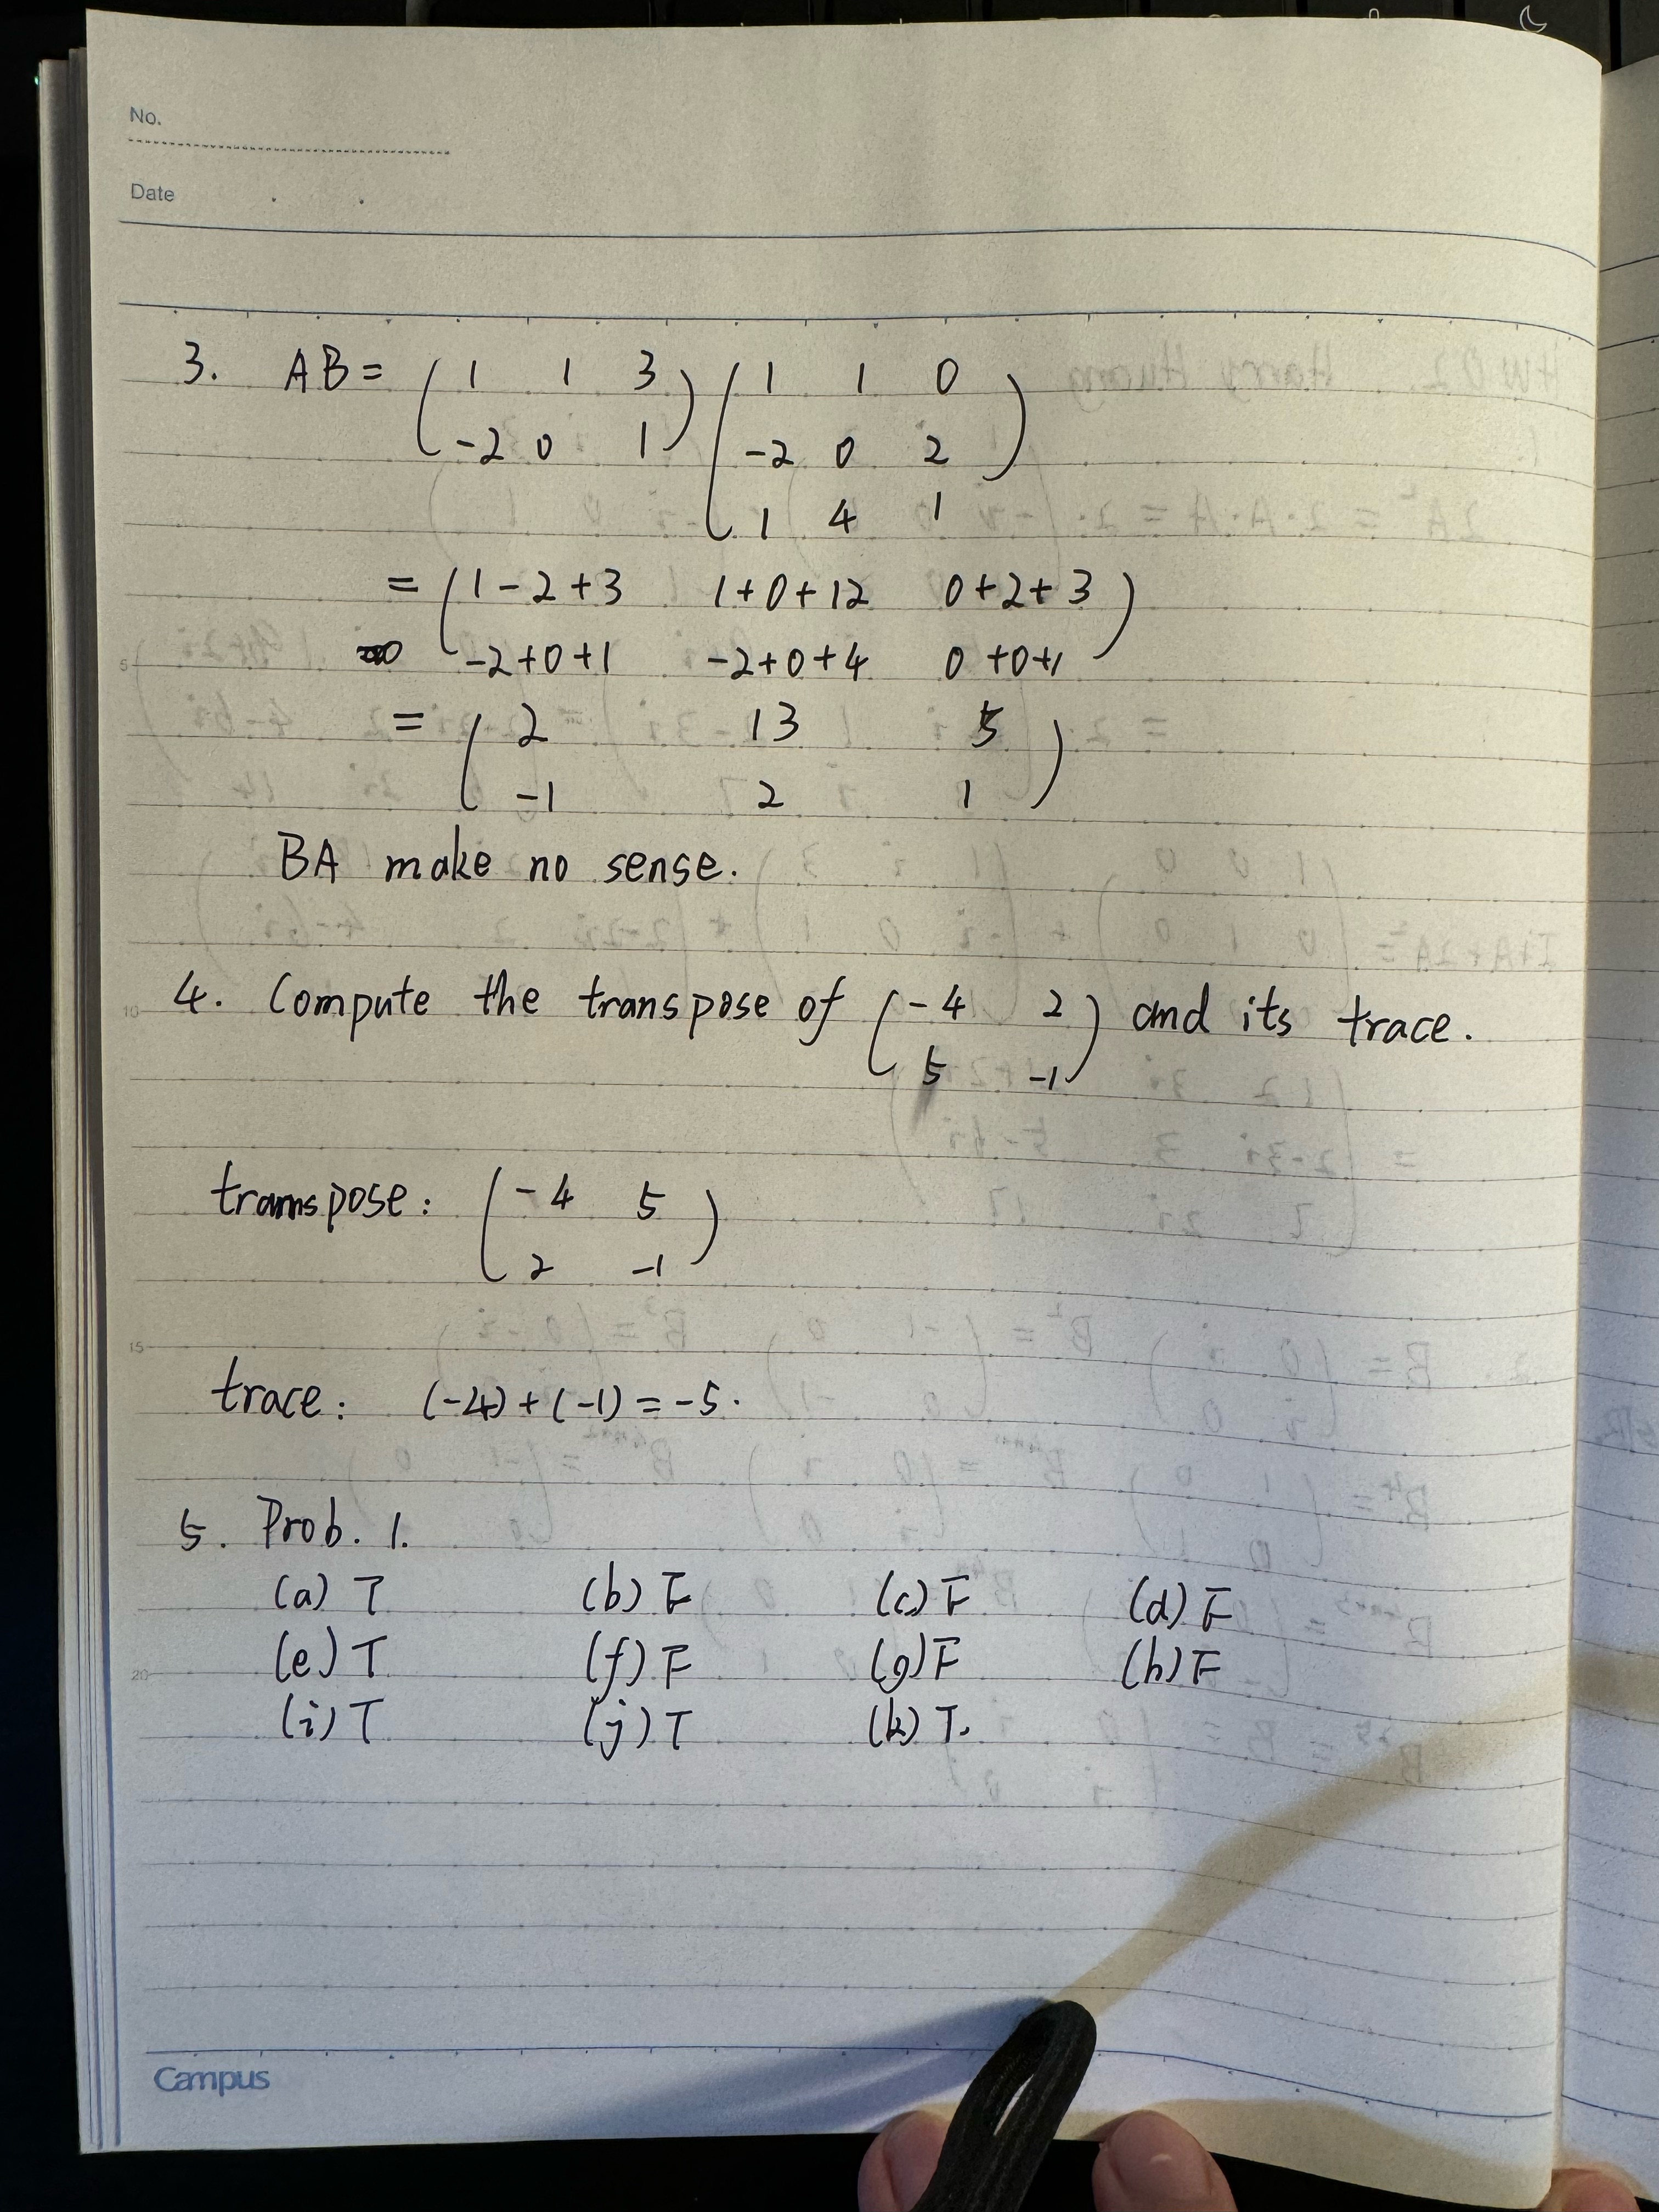 No.
Date
3. AB = ( 1 1 3 ) ( 1 1 0 )
-2 0 1 -2 0 2
1 4 1
= ( 1-2+3 1+0+12 0+2+3 )
-2+0+1 -2+0+4 0+0+1
= ( 2 13 5 )
-1 2 1
BA make no sense.
4. Compute the transpose of ( -4 2 ) and its trace.
5 -1
transpose: ( -4 5 )
2 -1
trace: (-4)+(-1)=-5.
5. Prob. 1.
(a) T (b) F (c) F (d) F
(e) T (f) F (g) F (h) F
(i) T (j) T (k) T.
5
10
15
20
Campus